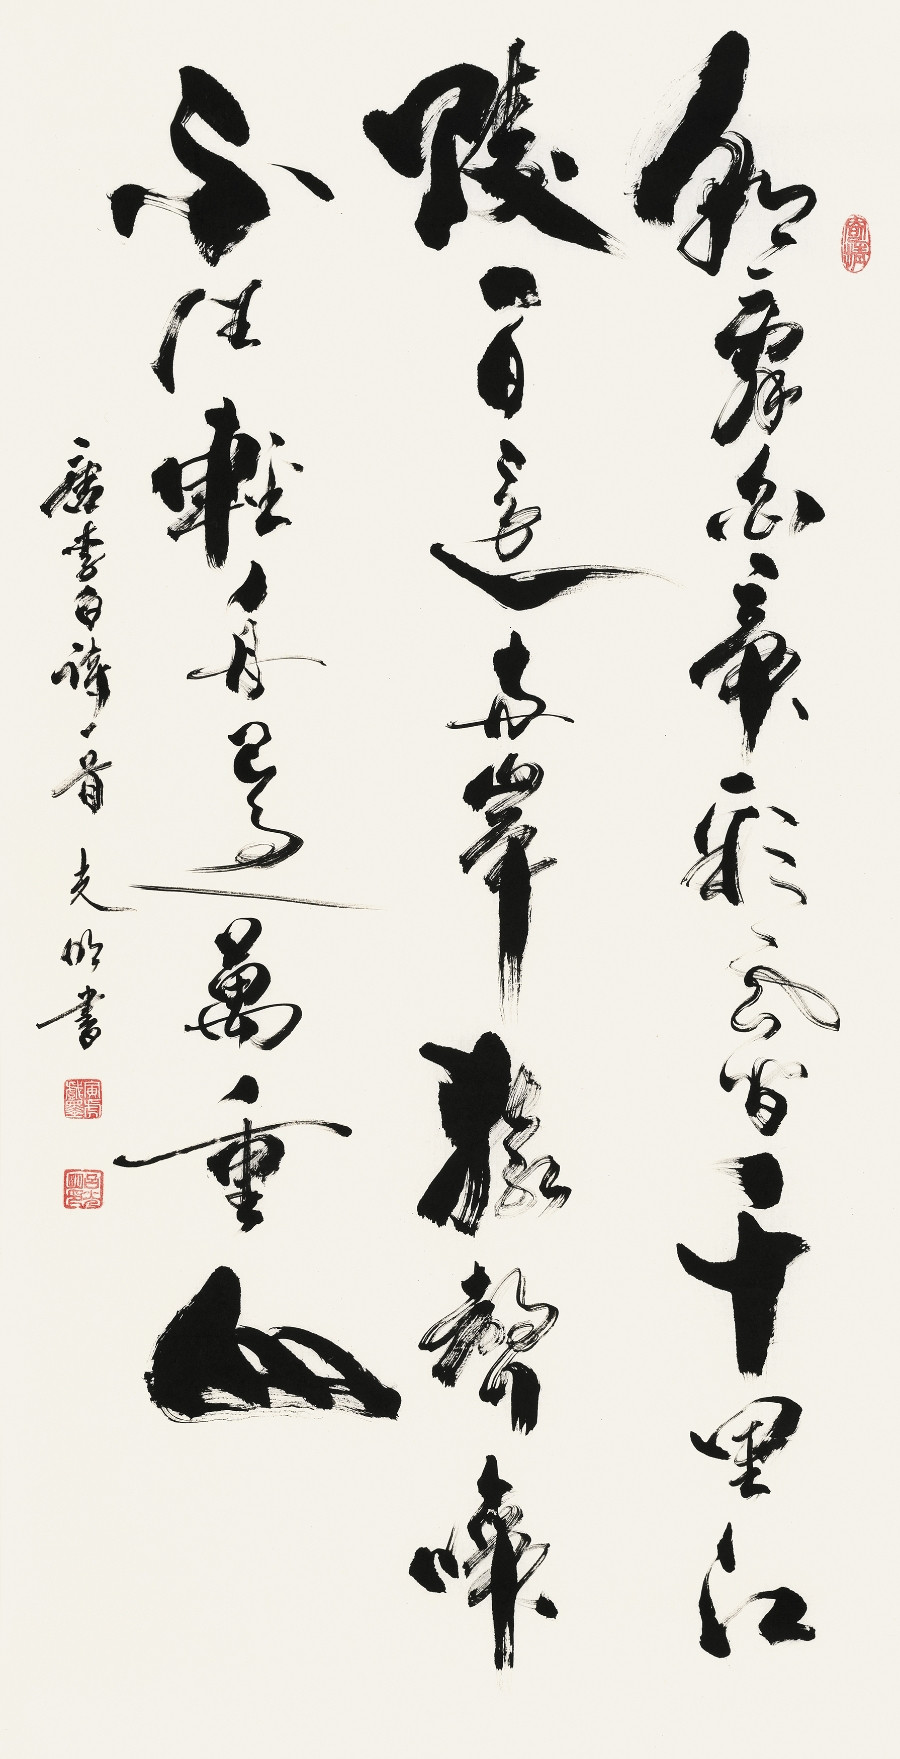 朝辭白帝彩雲間千里江
陵一日還兩岸猿聲啼
不住輕舟已過萬重山
唐李白詩一首 光明書